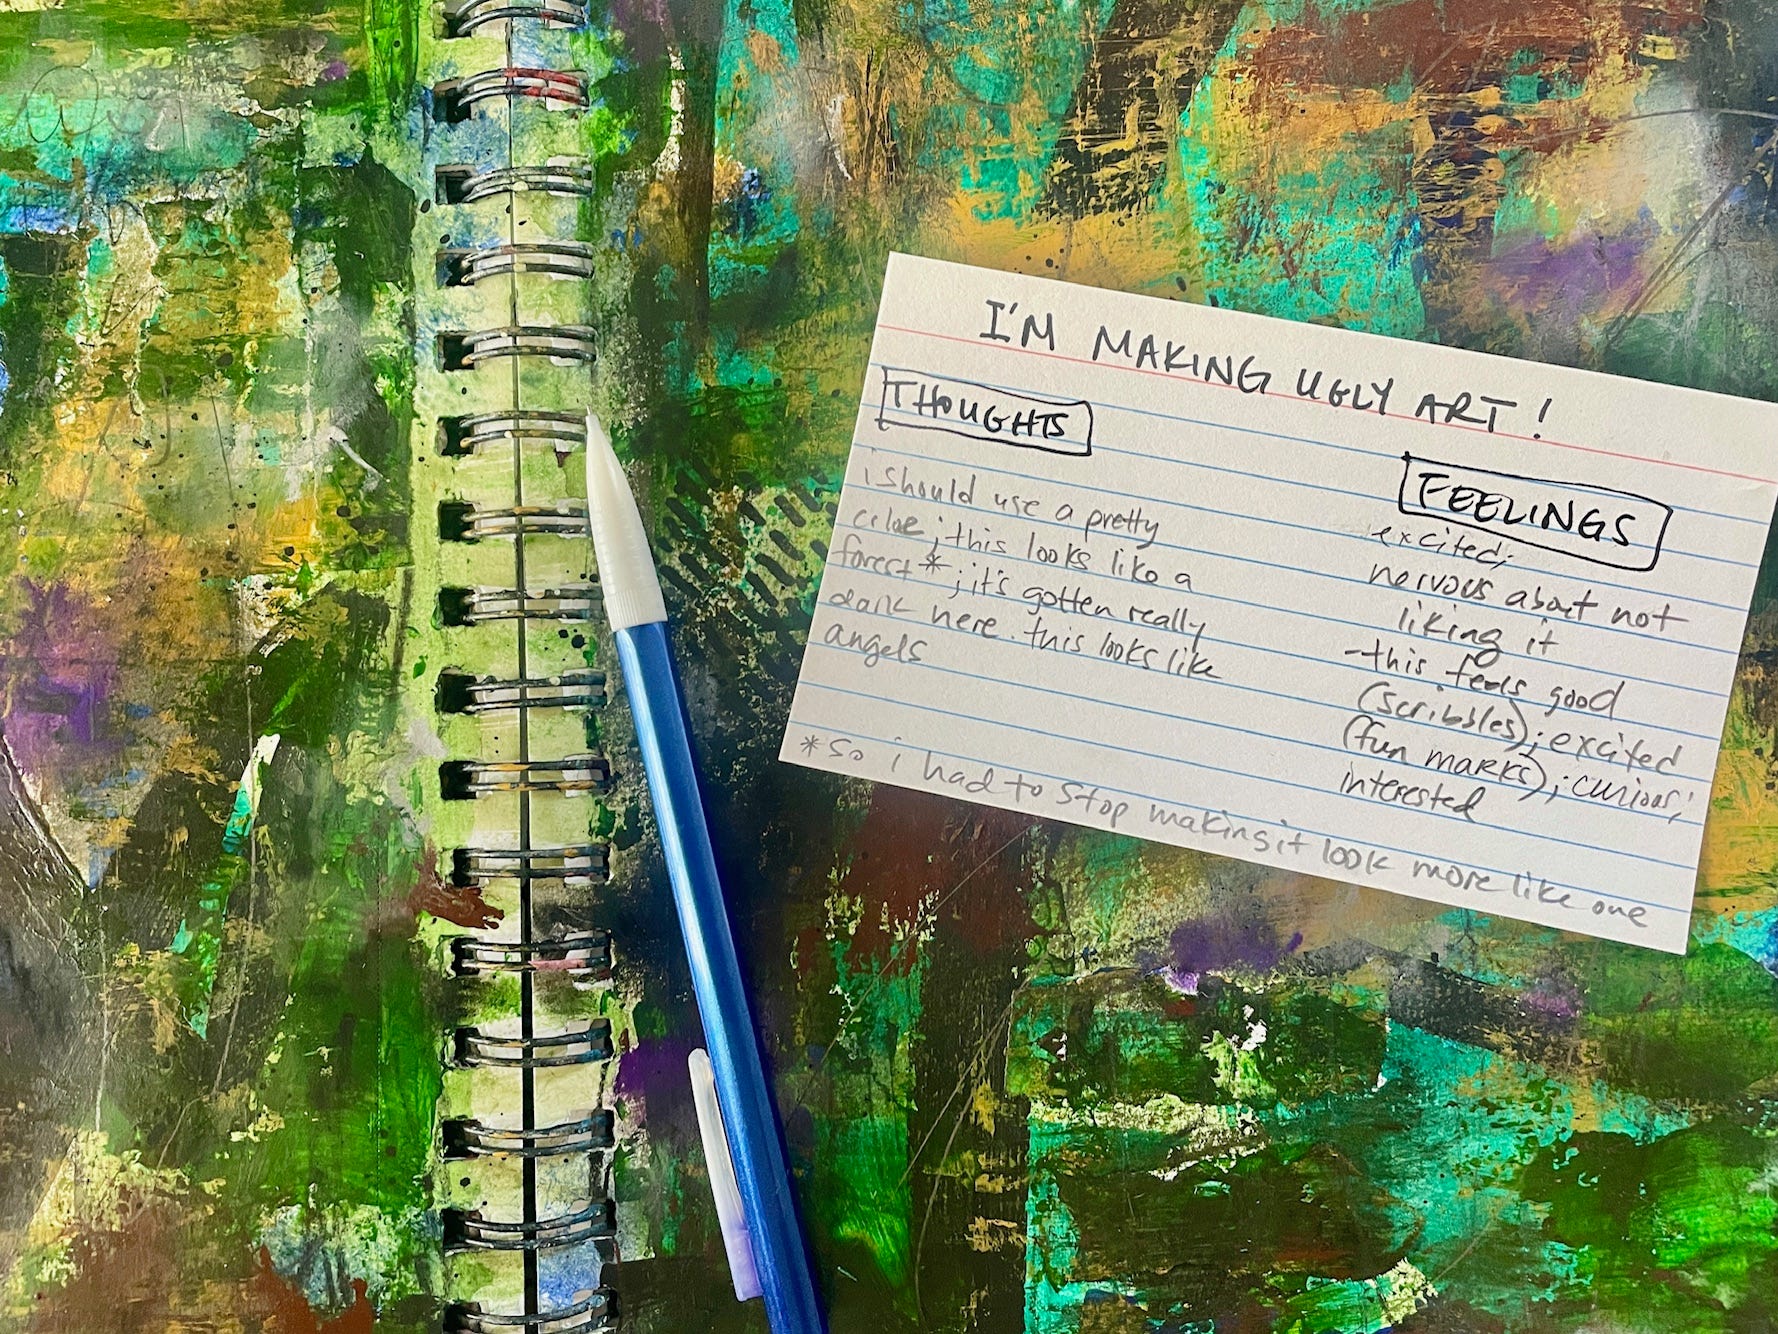 I'M MAKING UGLY ART!
THOUGHTS
i should use a pretty
color; this looks like a
forest*; it's gotten really
dark here. this looks like
angels
FEELINGS
excited;
nervous about not
liking it
-this feels good
(scribbles); excited
(fun marks); curious;
interested
*so i had to stop making it look more like one